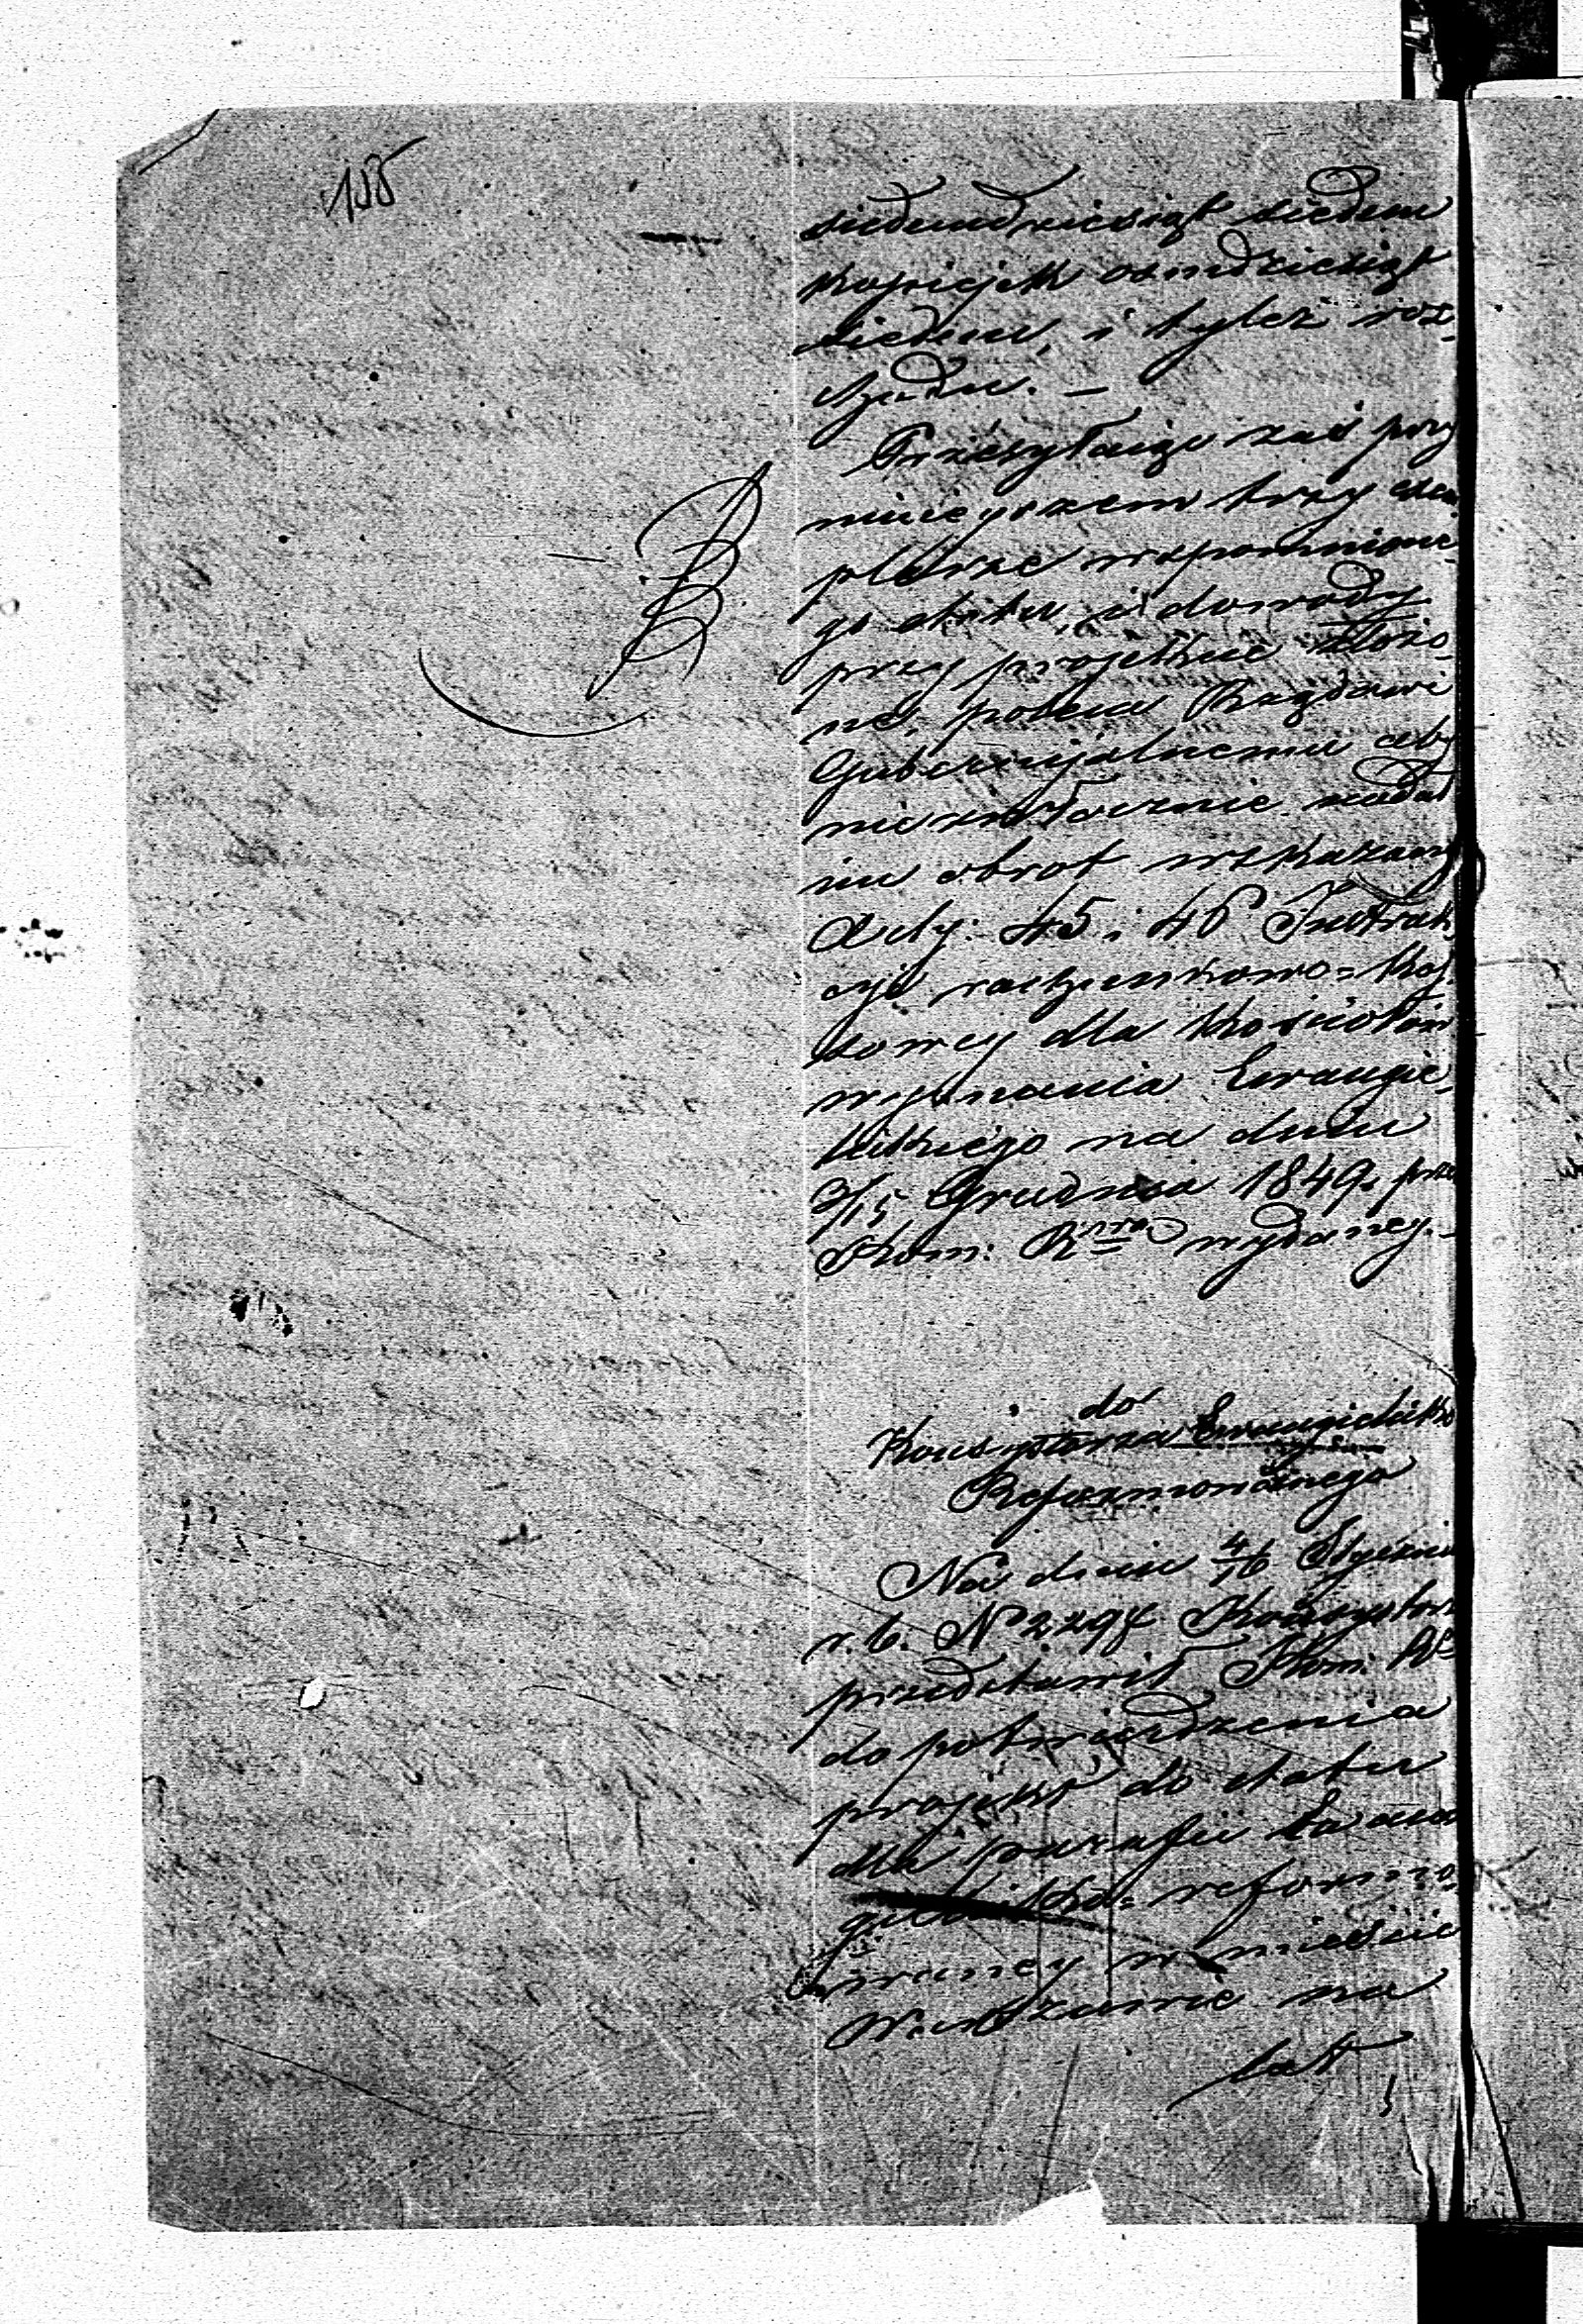 108
siedemdziesiąt siedem
kopiejek osmdziesiąt
siedem, i tyleż roz-
chodu. —
Przesyłaiąc zaś przy
ninieyszem trzy exem
plarze wspomnione-
go etatu, i dowody
przy projekcie złożo-
ne, poleca Rządowi
Gubernijalnemu aby
niezwłocznie nadał
im obrot wskazany
Arty: 45 i 46 Instruk
cyi rachunkowo-kas-
sowey dla kościołów
wyznania Ewangie-
lickiego na dniu
3/15 Grudnia 1849 przez
Kom: R wydaney.-
do
Konsystorza Ewangielicko
Reformowanego
Na dniu 4/16 Stycznia
r. b. N 2298 Konsystorz
przedstawił Kom: R
do potwierdzenia
projekt do etatu
dla parafii Ewan
gielicko-reformo-
waney w mieście
Warszawie na
lat